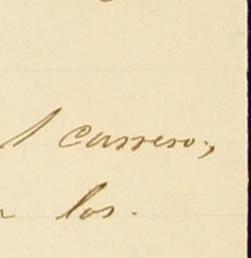 1 carrero,
los.